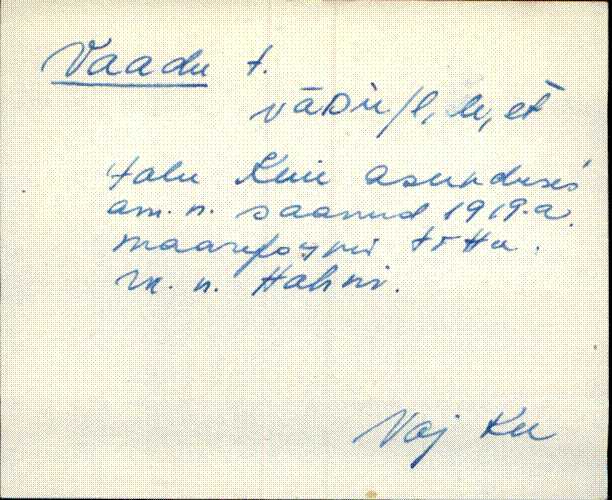 Vaadu t.
vāDu/l, le, et
talu Kuie asunduses
am. n. saanud 1919. a.
maareformi tõttu.
rv. n. Hahni.
Vaj Ku